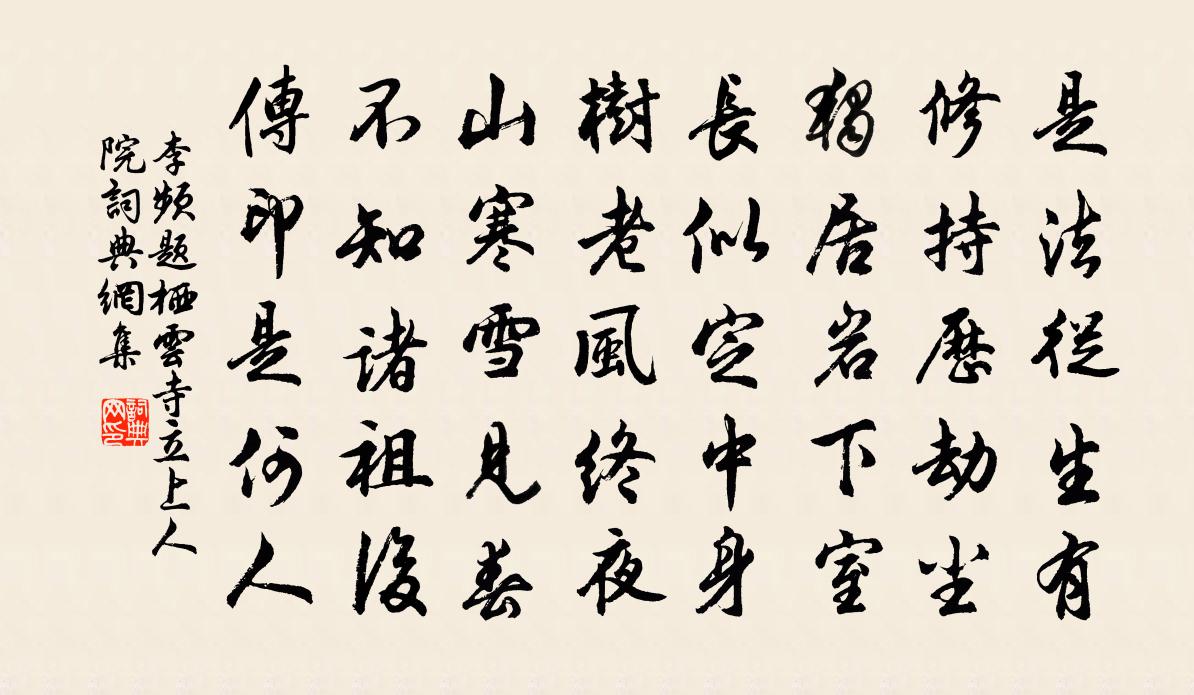 是法從生有
修持歷劫尘
獨居岩下室
長似定中身
樹老風終夜
山寒雪見春
不知諸祖後
傳印是何人
李頻题栖雲寺立上人
院詞典網集
詞典
网印